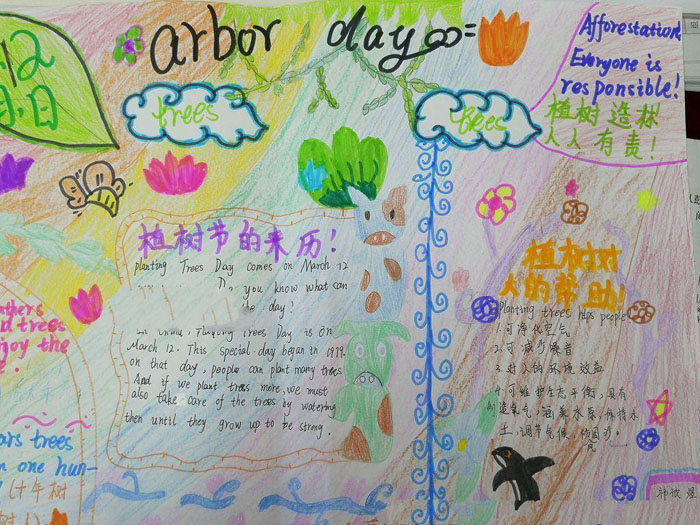 arbor day
12
日
trees
trees
Afforestation,
Everyone is
responsible!
植树造林
人人有责!
植树节的来历!
planting Trees Day comes on March 12
you know what can
the day!
Trees Day is on
March 12. This special day began in 1979.
on that day, people can plant many trees
And if we plant trees more, we must
also take care of the trees by watering
then until they grow up to be strong.
植树对
人的帮助!
Planting trees helps people
1.可净化空气
2.可减少噪音
3.对人的环境效益
4.可维护生态平衡,具有
造氧气,涵养水原,保持水
土,调节气候
others
d trees
joy the
ars trees
n one hun-
(十年树